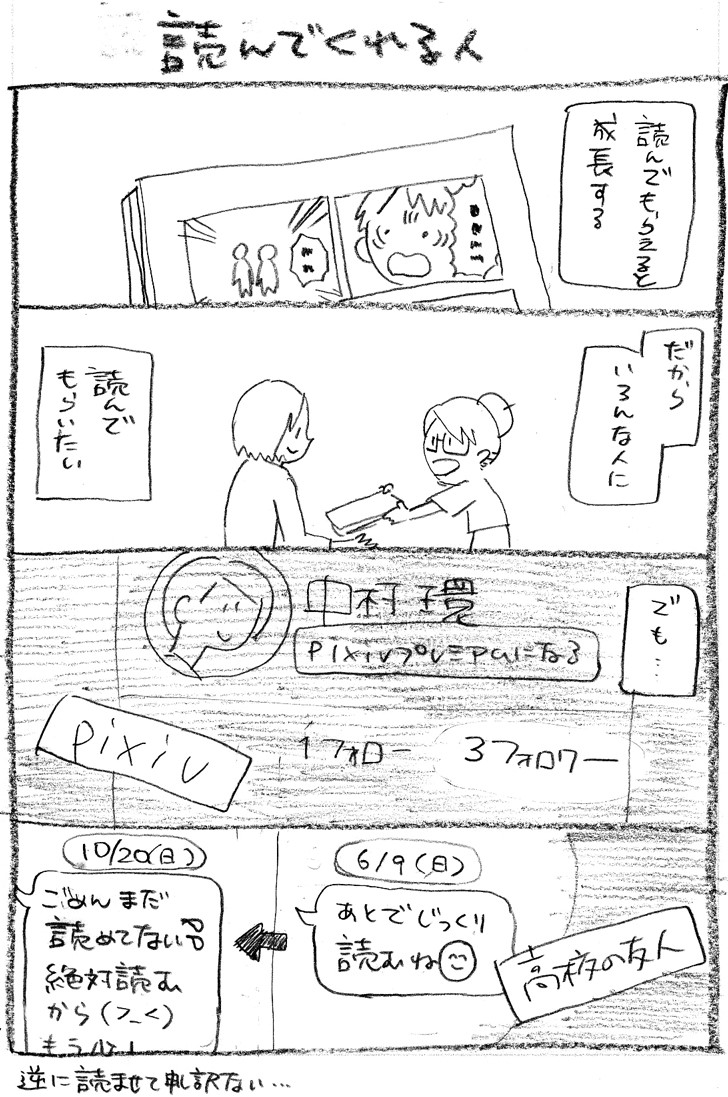 読んでくれる人
読んでもらえると
成長する
だから
いろんな人に
読んで
もらいたい
でも…
中村環
pixivプレミアムになる
pixiv
1フォロー
3フォロワー
6/9(日)
あとでじっくり
読むね
高校の友人
10/20(日)
ごめんまだ
読めてない
絶対読む
から(>_<)
もう少し
逆に読ませて申し訳ない…